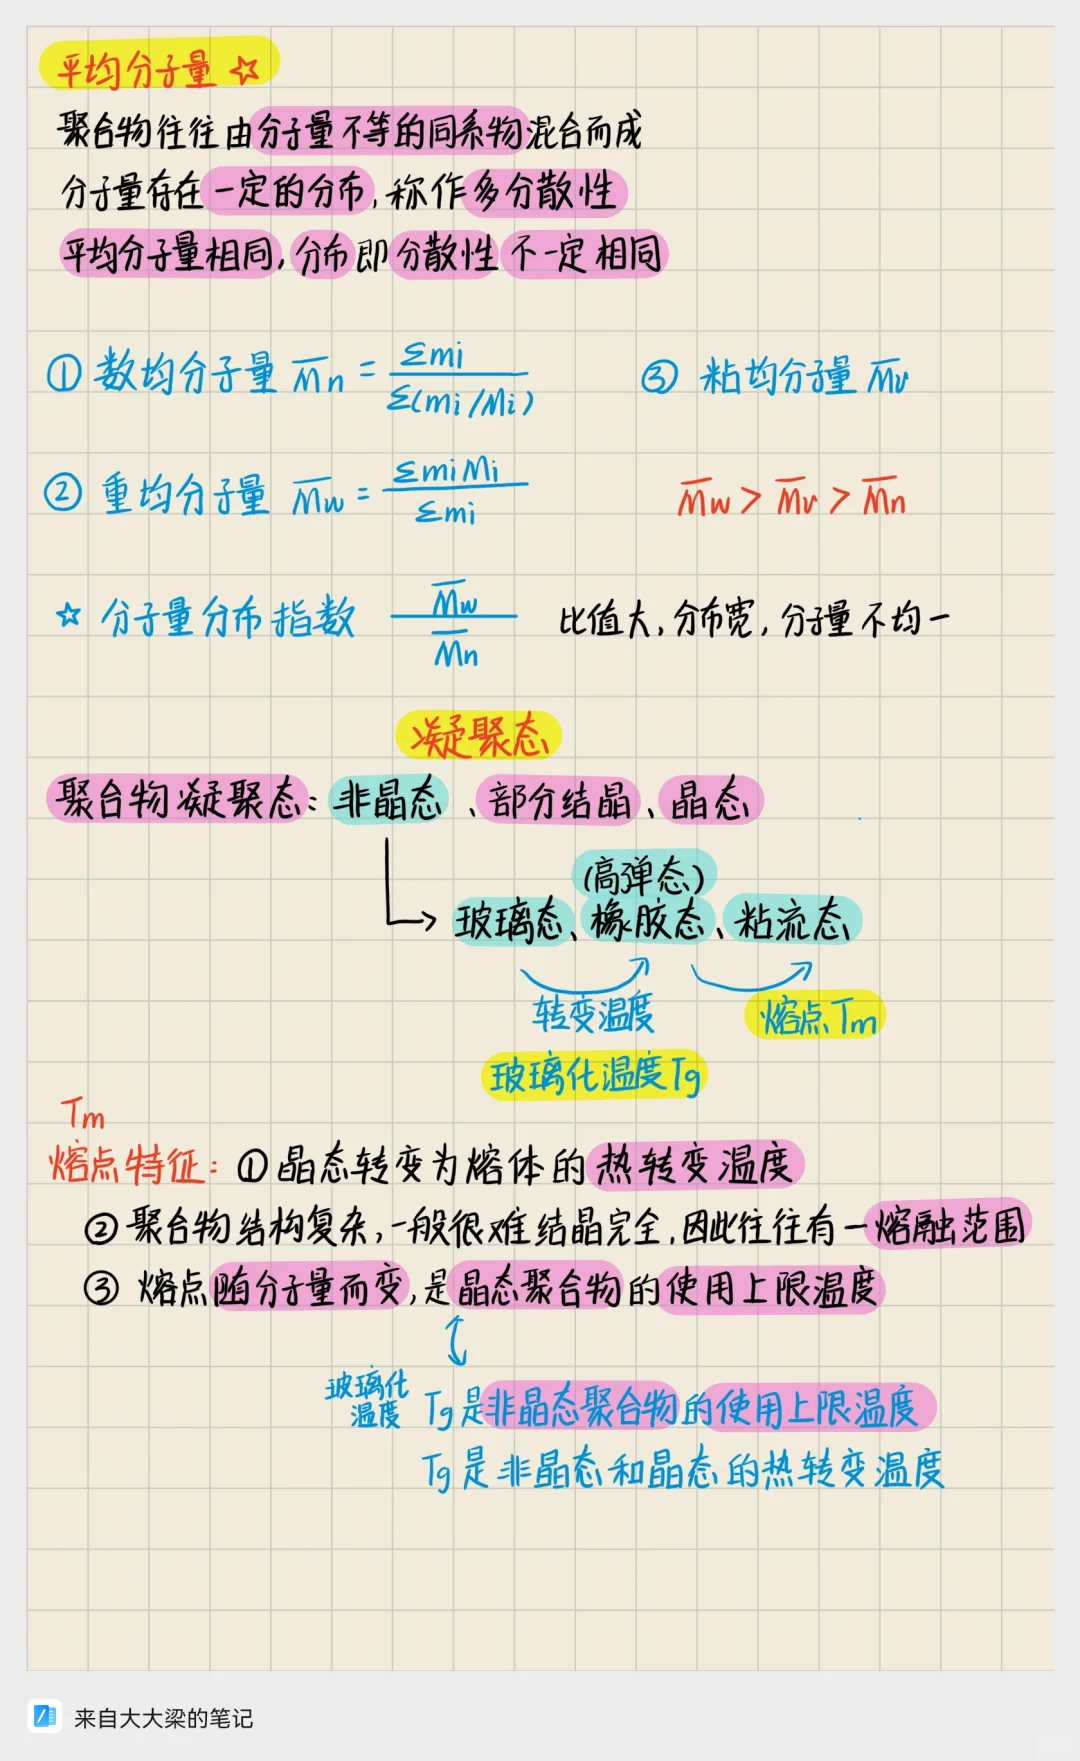 平均分子量 ☆
聚合物往往由分子量不等的同系物混合而成
分子量存在一定的分布,称作多分散性
平均分子量相同,分布即分散性不一定相同
① 数均分子量 M̅n = Σmi / Σ(mi/Mi)
③ 粘均分子量 M̅v
② 重均分子量 M̅w = ΣmiMi / Σmi
M̅w > M̅v > M̅n
☆ 分子量分布指数 M̅w / M̅n 比值大,分布宽,分子量不均一
凝聚态
聚合物凝聚态:非晶态、部分结晶、晶态
(高弹态)
玻璃态、橡胶态、粘流态
转变温度 熔点Tm
玻璃化温度Tg
Tm
熔点特征:①晶态转变为熔体的热转变温度
②聚合物结构复杂,一般很难结晶完全,因此往往有一熔融范围
③ 熔点随分子量而变,是晶态聚合物的使用上限温度
玻璃化
温度 Tg是非晶态聚合物的使用上限温度
Tg是非晶态和晶态的热转变温度
来自大大梁的笔记